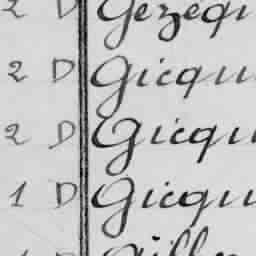 2 D Gezequ
2 D Gicqu
2 D Gicqu
1 D Gicqu